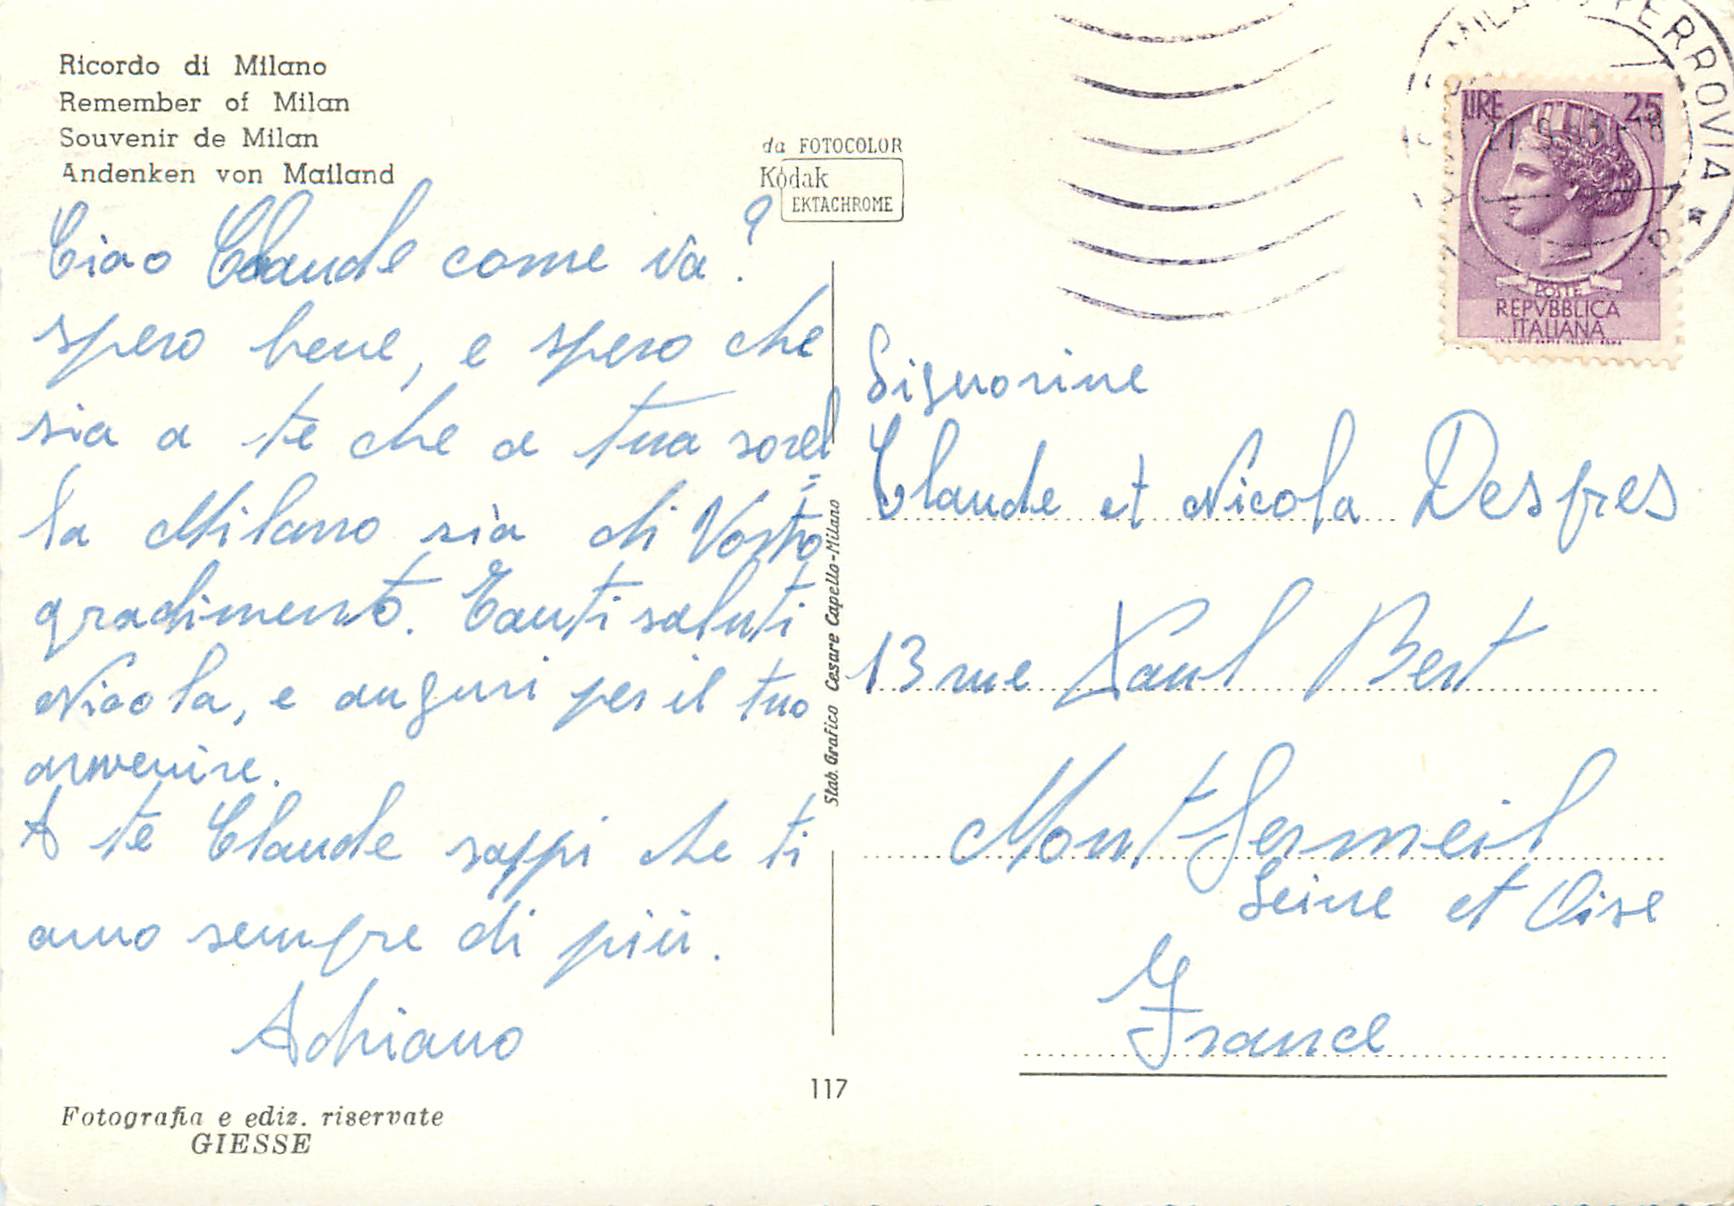 Ricordo di Milano
Remember of Milan
Souvenir de Milan
Andenken von Mailand
da FOTOCOLOR
Kodak
EKTACHROME
Ciao Claude come va?
spero bene, e spero che
sia a te che a tua sorel=
la Milano sia di Vostro
gradimento. Tanti saluti
Nicola, e auguri per il tuo
avvenire.
A te Claude sappi che ti
amo sempre di più.
Adriano
Fotografia e ediz. riservate
GIESSE
117
Stab. Grafico Cesare Capello-Milano
FERROVIA
LIRE 25
POSTE
REPVBBLICA
ITALIANA
Signorine
Claude et Nicola Desfres
13 rue Paul Bert
Montfermeil
Seine et Oise
France